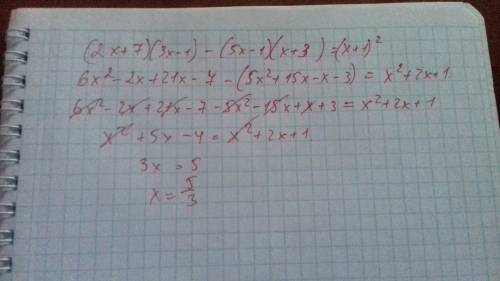 (2x+7)(3x-1) - (5x-1)(x+3) = (x+1)²
6x² - 2x + 21x - 7 - (5x² + 15x - x - 3) = x² + 2x + 1
6x² - 2x + 21x - 7 - 5x² - 15x + x + 3 = x² + 2x + 1
x² + 5x - 4 = x² + 2x + 1
3x = 5
x = 5/3